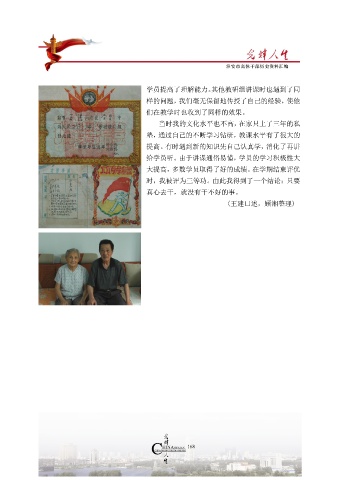 光辉人生
学员提高了理解能力。其他教研组讲课时也遇到了同
样的问题，我们毫无保留地传授了自己的经验，使他
们在教学时也收到了同样的效果。
当时我的文化水平也不高，在家只上了三年的私
塾，通过自己的不断学习钻研，教课水平有了很大的
提高。有时遇到新的知识先自己认真学，消化了再讲
给学员听。由于讲课通俗易懂，学员的学习积极性大
大提高，多数学员取得了好的成绩。在学期结束评优
时，我被评为三等功。由此我得到了一个结论：只要
真心去干，就没有干不好的事。
（王建口述，顾湘整理）
光辉人生
168